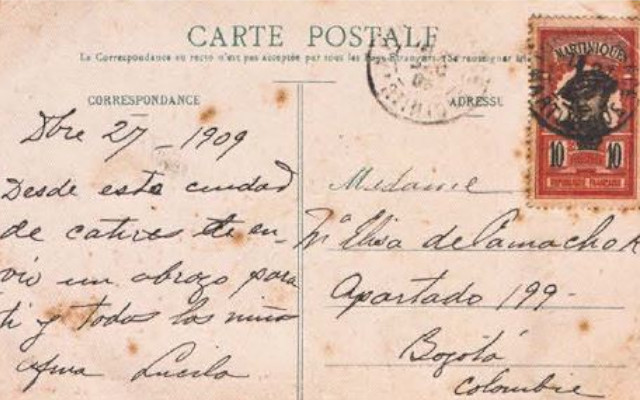 CARTE POSTALE
La Correspondance au recto n'est pas acceptée par tous les Pays Etrangers. (Se renseigner
CORRESPONDANCE
ADRESSE
MARTINIQUE
10 10
REPUBLIQUE FRANCAISE
Dbre 27 - 1909
Desde esta ciudad
de catires te en-
vio un abrazo para
ti y todos los niños
afma Lucila
Madame
Ma Elisa de Camacho R
Apartado 199-
Bogotá
Colombie